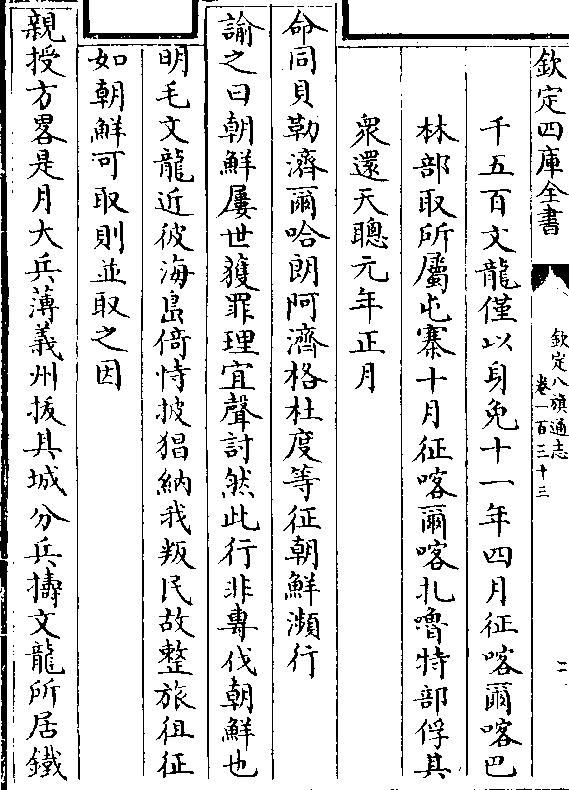 欽定四庫全書
欽定八旗通志
卷一百三十三
二
千五百文龍僅以身免十一年四月征喀爾喀巴
林部取所屬屯寨十月征喀爾喀扎嚕特部俘其
衆還天聰元年正月
命同貝勒濟爾哈朗阿濟格杜度等征朝鮮瀕行
諭之曰朝鮮屢世獲罪理宜聲討然此行非專伐朝鮮也
明毛文龍近彼海島倚恃披猖納我叛民故整旅徂征
如朝鮮可取則並取之因
親授方畧是月大兵薄義州拔其城分兵擣文龍所居鐵